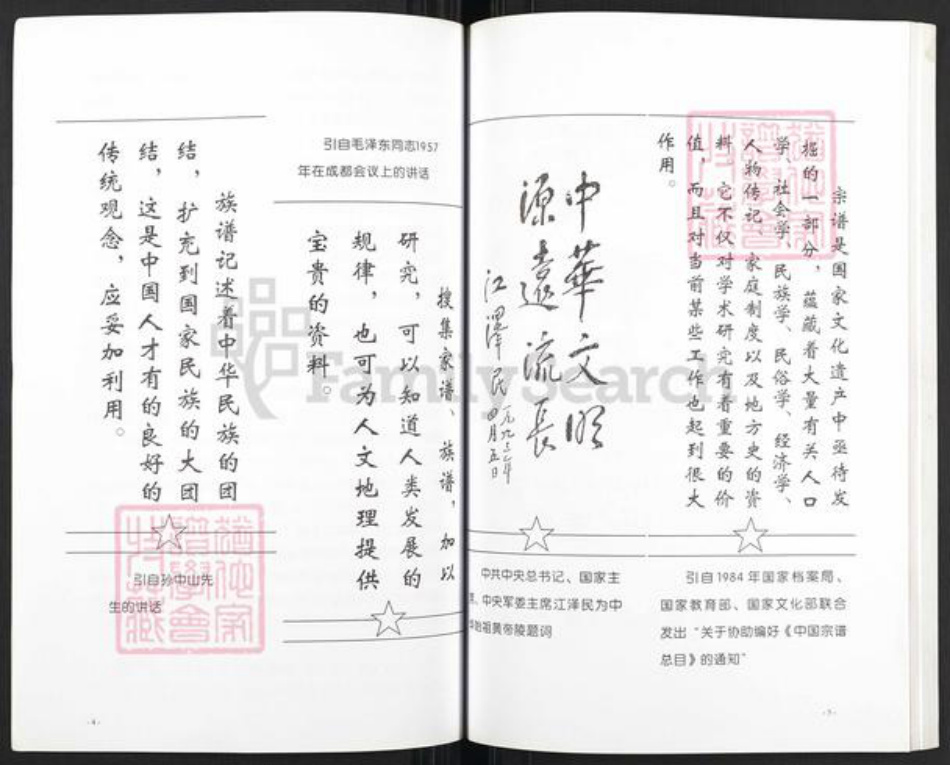 宗谱是国家文化遗产中亟待发
掘的一部分，蕴藏着大量有关人口
学、社会学、民族学、民俗学、经济学、
人物传记、家庭制度以及地方史的资
料，它不仅对学术研究有着重要的价
值，而且对当前某些工作也起到很大
作用。
引自1984年国家档案局、
国家教育部、国家文化部联合
发出“关于协助编好《中国宗谱
总目》的通知”
中華文明
源遠流長
江澤民
一九九三年
四月五日
中共中央总书记、国家主
席、中央军委主席江泽民为中
华始祖黄帝陵题词
-5-
引自毛泽东同志1957
年在成都会议上的讲话
搜集家谱、族谱，加以
研究，可以知道人类发展的
规律，也可为人文地理提供
宝贵的资料。
族谱记述着中华民族的团
结，扩充到国家民族的大团
结，这是中国人才有的良好的
传统观念，应妥加利用。
引自孙中山先
生的讲话
-4-
FamilySearch